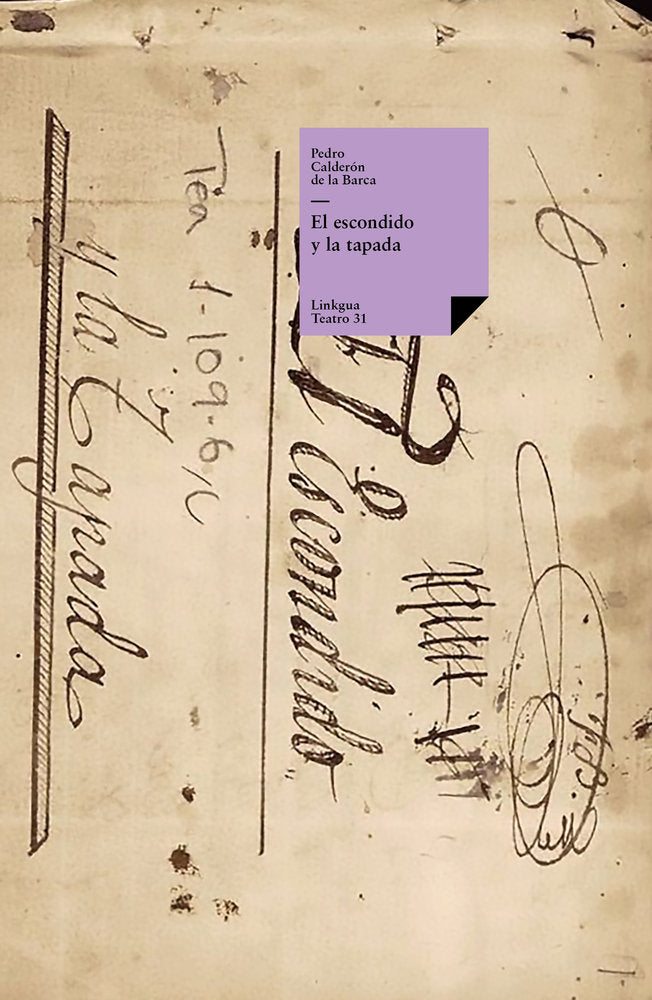 Pedro
Calderón
de la Barca
El escondido
y la tapada
Linkgua
Teatro 31
El
Escondido
Tea 1-109-6,
y la Tapada